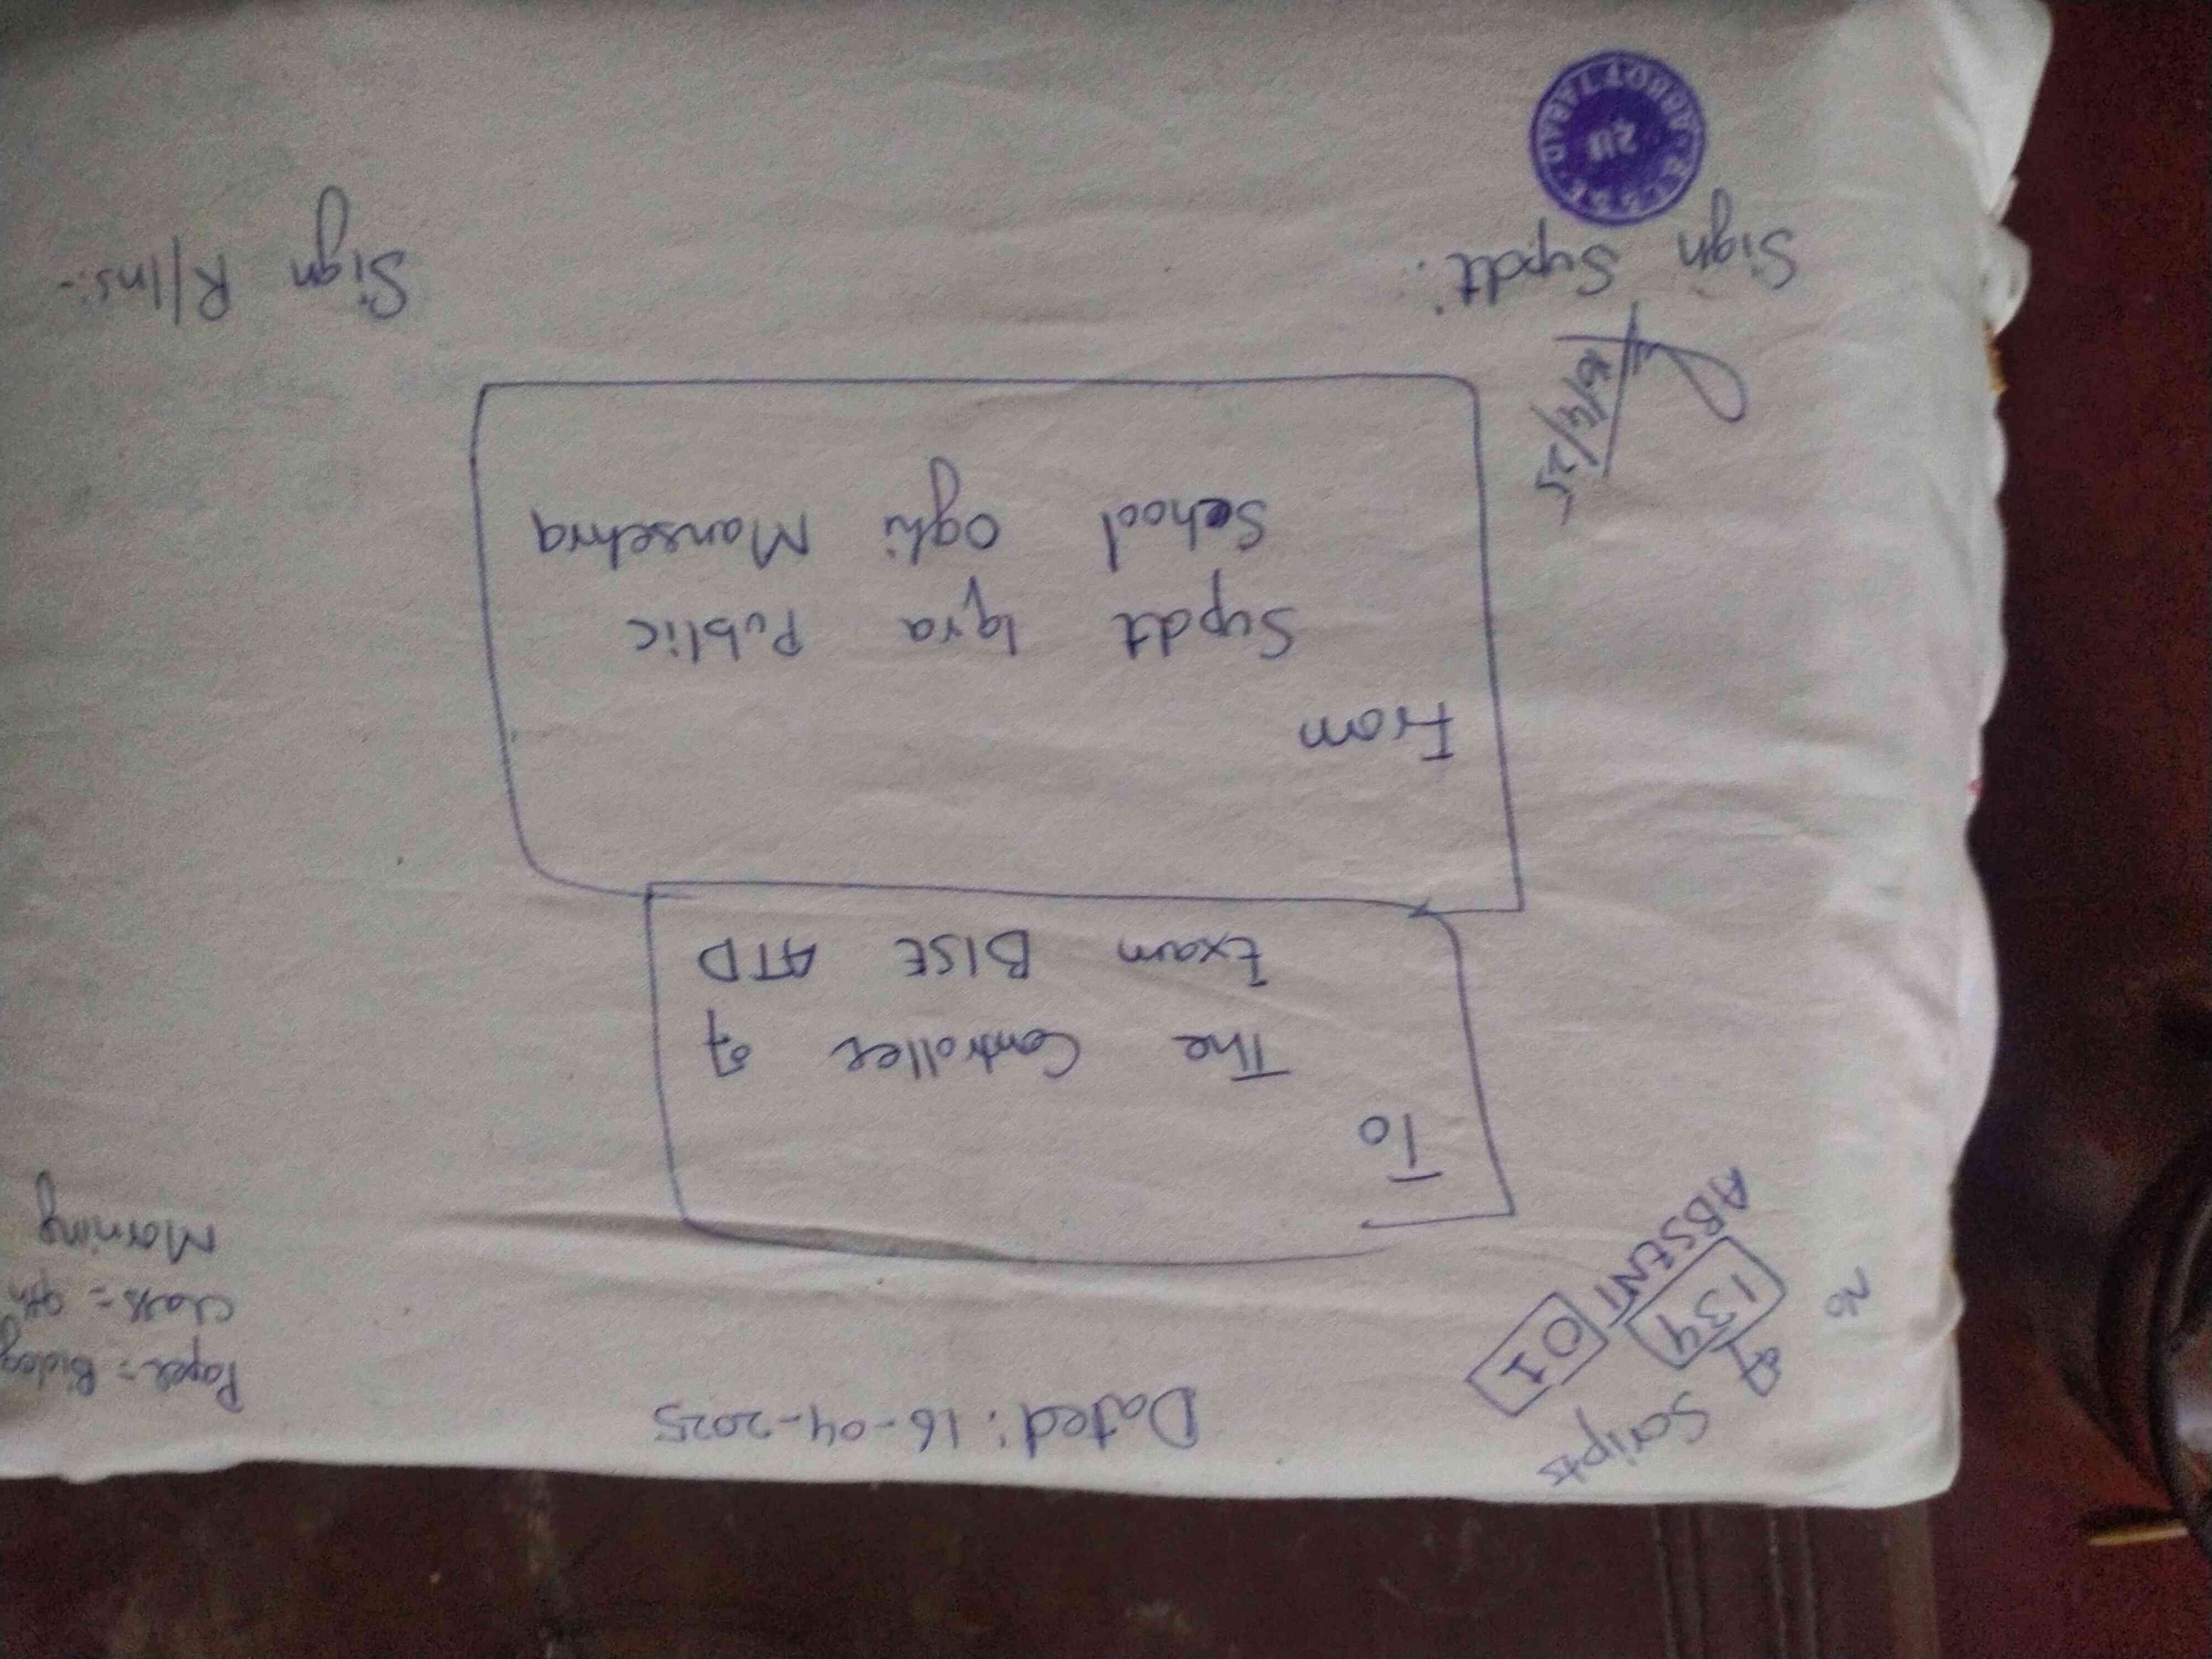 No of Scripts
134
ABSENT 01
Dated: 16-04-2025
Paper = Biolog
Class = 9th
Morning
To
The Controller of
Exam BISE ATD
From
Supdt Iqra Public
School Oghi Mansehra
16/4/25
Sign Supdt:
Sign R/Ins:-
B.I.S.E. ABBOTTABAD
211